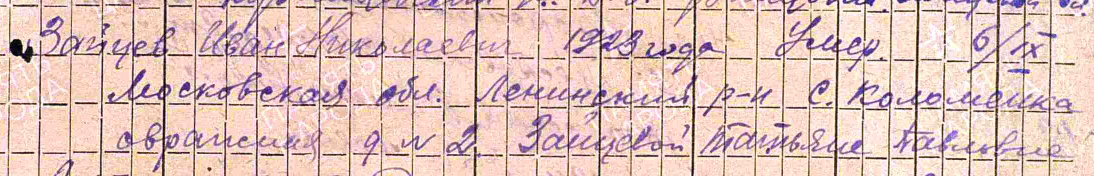 Зайцев Иван Николаевич 1923 года Умер. 6/IX
Московская обл. Ленинский р-н с. Коломенка
овражная д N 2. Зайцевой Татьяне Павловне